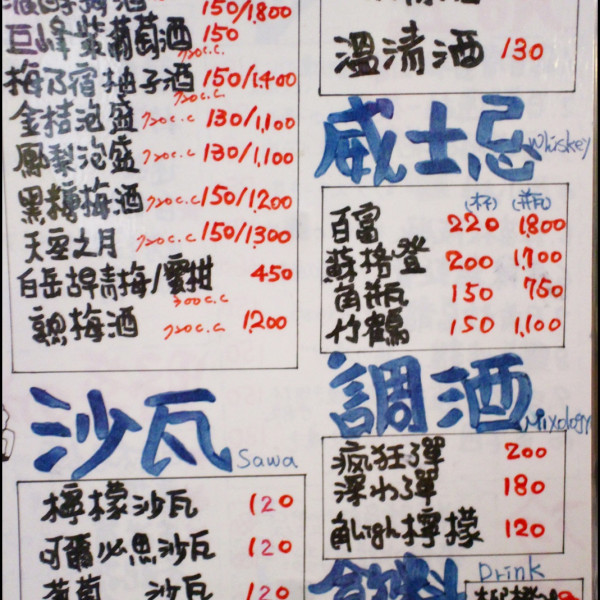 150/1,800
巨峰紫葡萄酒 150
720c.c
梅乃宿柚子酒 150/1,400
720c.c
金桔泡盛 720c.c 130/1,100
鳳梨泡盛 720c.c 130/1,100
黑糖梅酒 720c.c 150/1,200
天空之月 720c.c 150/1,300
白岳 青梅/蜜柑 450
300c.c
梅酒 720c.c 1,200
沙瓦 Sawa
檸檬沙瓦 120
可爾必思沙瓦 120
葡萄 沙瓦 120
溫清酒 130
威士忌 Whiskey
(杯) (瓶)
百富 220 1,800
蘇格登 200 1,700
角瓶 150 750
竹鶴 150 1,100
調酒 Mixology
瘋狂彈 200
深水彈 180
角high檸檬 120
飲料 Drink